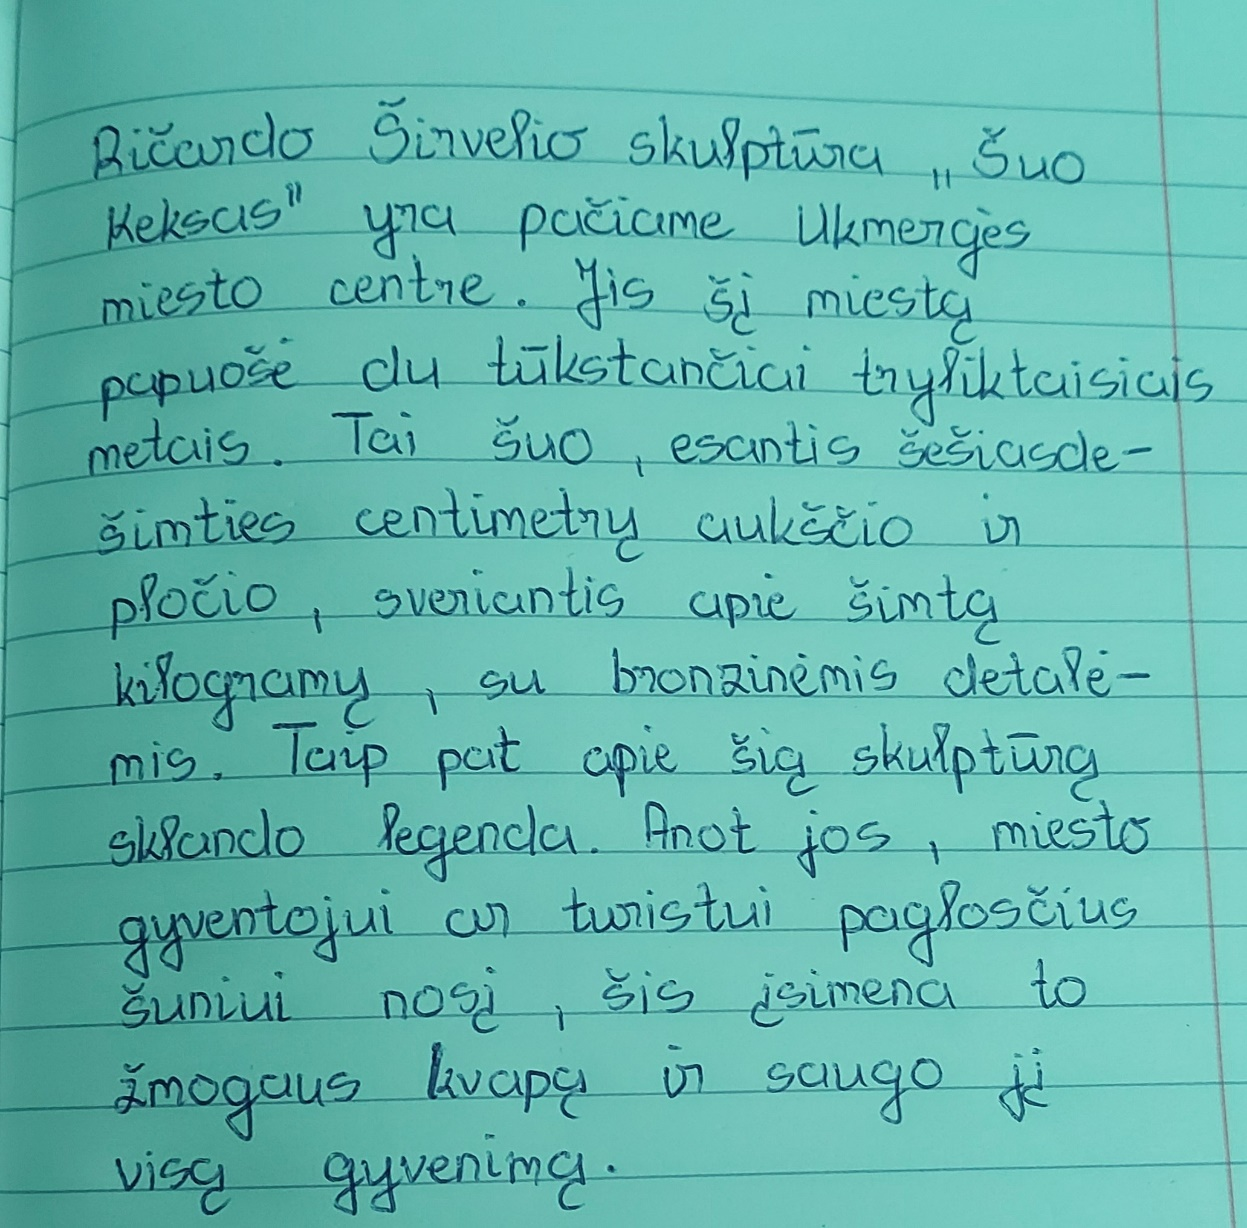 Ričardo Širvelio skulptūra „Šuo
Keksas" yra pačiame Ukmergės
miesto centre. Jis šį miestą
papuošė du tūkstančiai tryliktaisiais
metais. Tai šuo, esantis šešiasde-
šimties centimetrų aukščio ir
pločio, sveriantis apie šimtą
kilogramų, su bronzinėmis detalė-
mis. Taip pat apie šią skulptūrą
sklando legenda. Anot jos, miesto
gyventojui ar turistui pagłosčius
šuniui nosį, šis įsimena to
žmogaus kvapą ir saugo jį
visą gyvenimą.